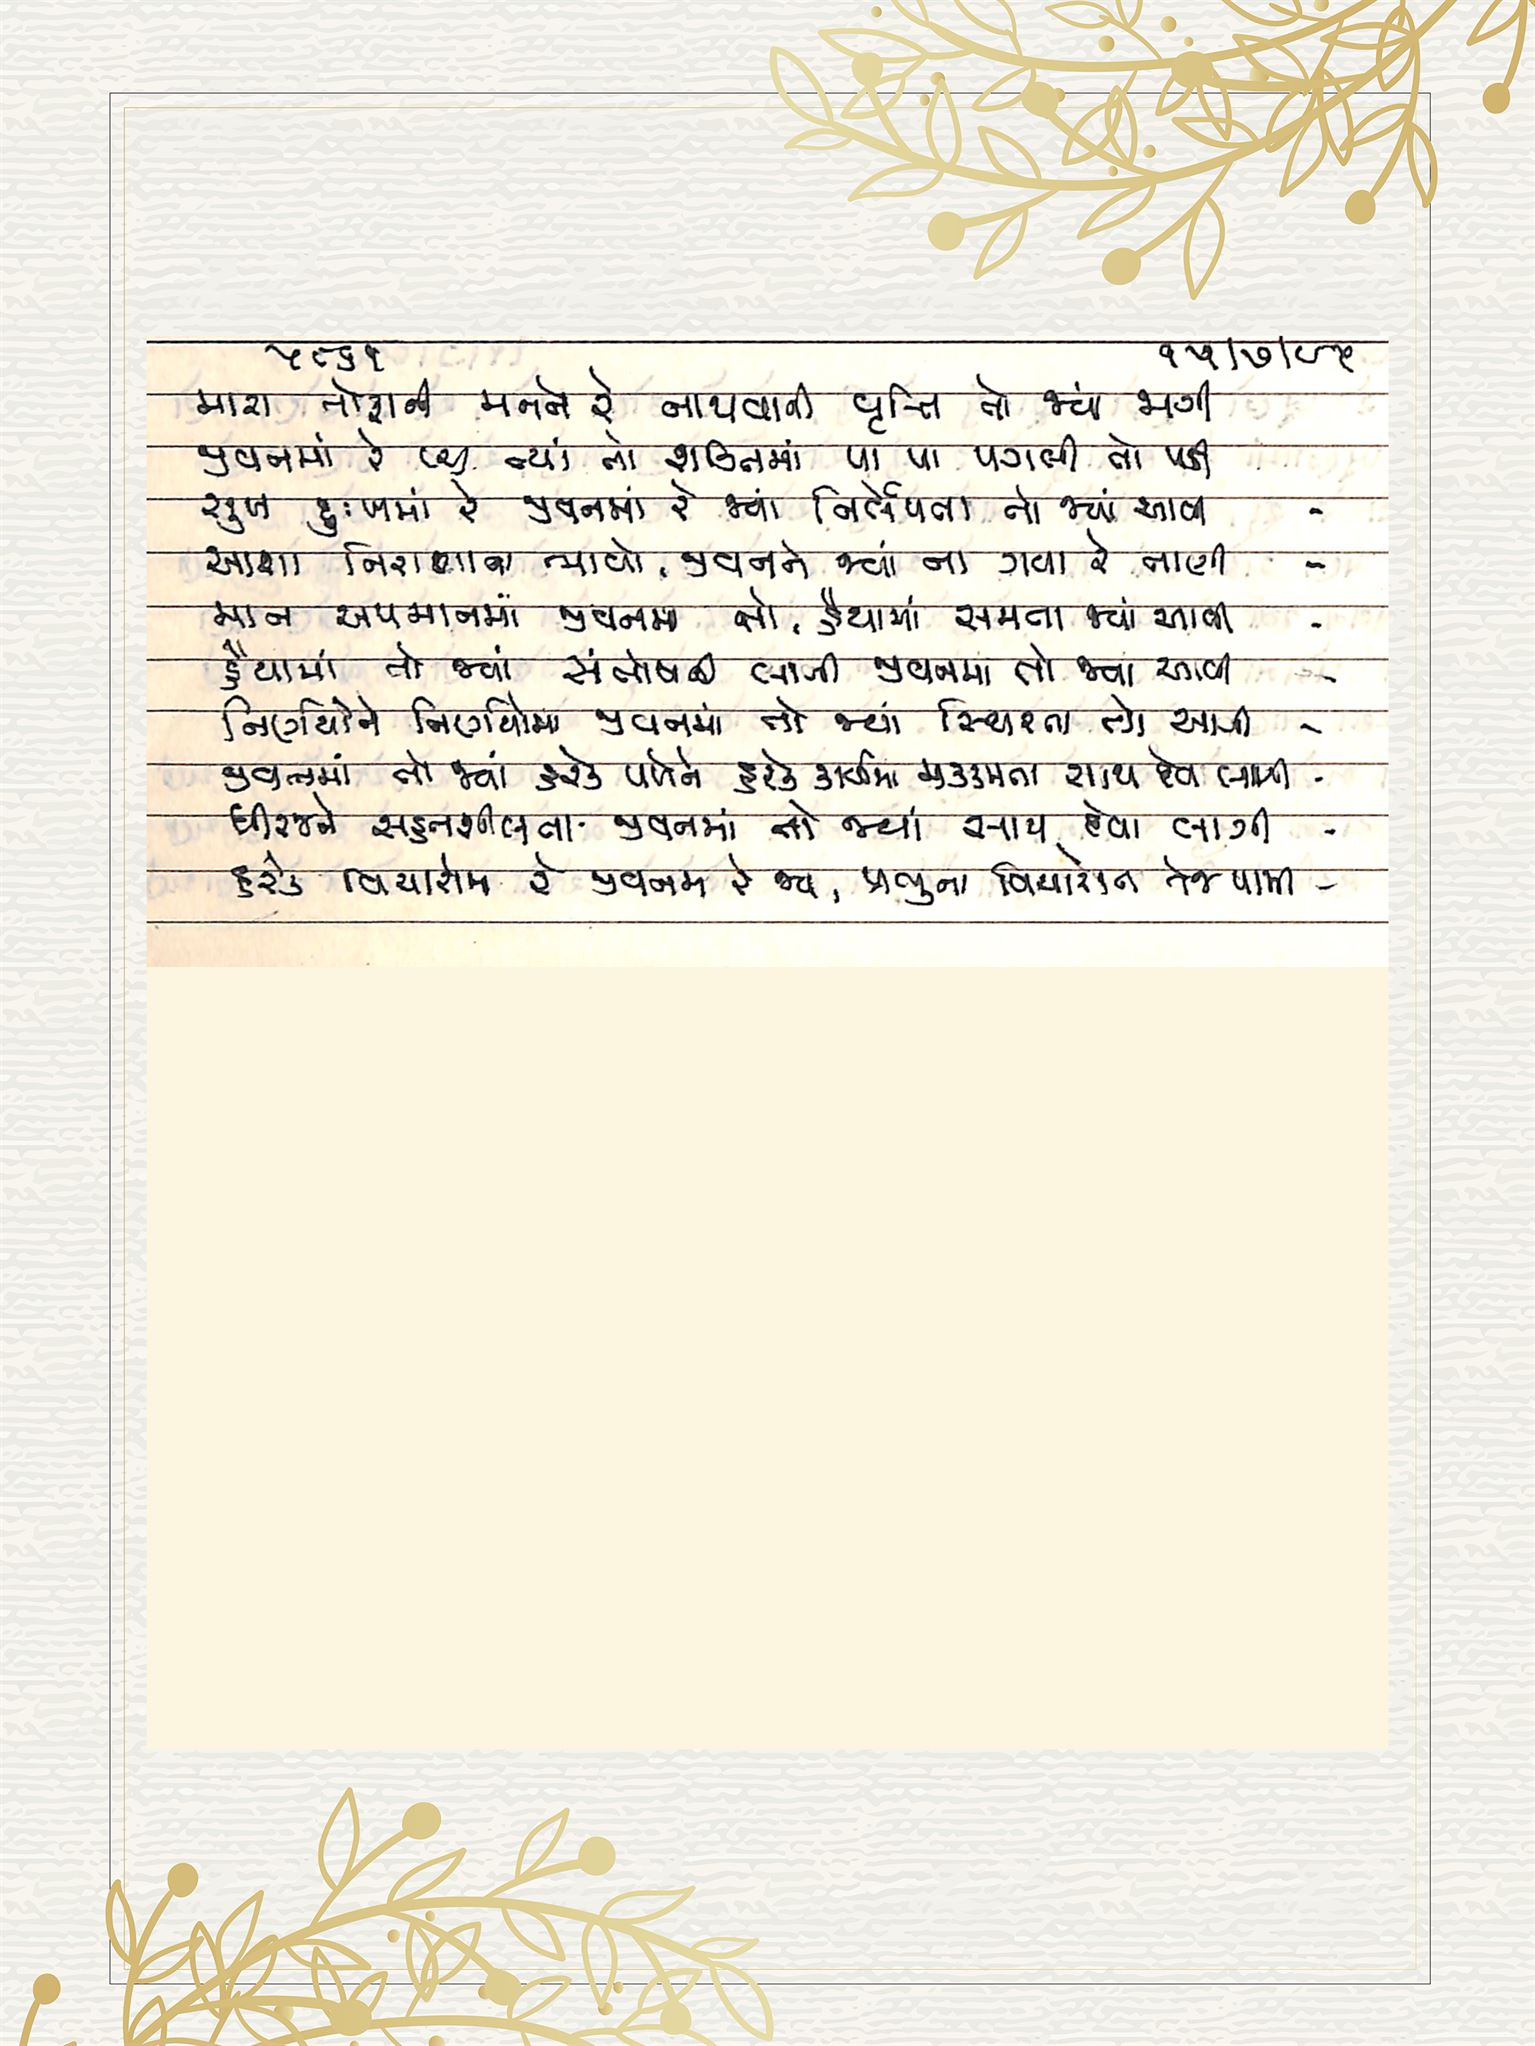 ૫૮૬૧ ૧૫/૭/૯૫
મારા તોફાની મનને રે નાથવાની વૃત્તિ તો જ્યાં જાગી
જીવનમાં રે ત્યાં તો શક્તિનમાં પા પા પગલી તો પડી
સુખ દુઃખમાં રે જીવનમાં રે જ્યાં નિર્લેપતા તો જ્યાં આવી -
આશા નિરાશાના જીવનને જ્યાં ના ગયા રે તાણી -
માન અપમાનમાં જીવનમાં તો, હૈયામાં સમતા જ્યાં આવી -
હૈયામાં તો જ્યાં સંતોષની જીવનમાં તો જ્યાં આવી -
નિર્ણયોને નિર્ણયોમાં જીવનમાં તો જ્યાં સ્થિરતા તો આવી -
જીવનમાં તો જ્યાં હરેક પળેને હરેક કાર્યમાં મક્કમતા સાથ દેવા લાગી -
ધીરજને સહનશીલતા જીવનમાં તો જ્યાં સાથ દેવા લાગી -
હરેક વિચારોમાં રે જીવનમાં રે જ્યાં, પ્રભુના વિચારોન તેજ પામી -